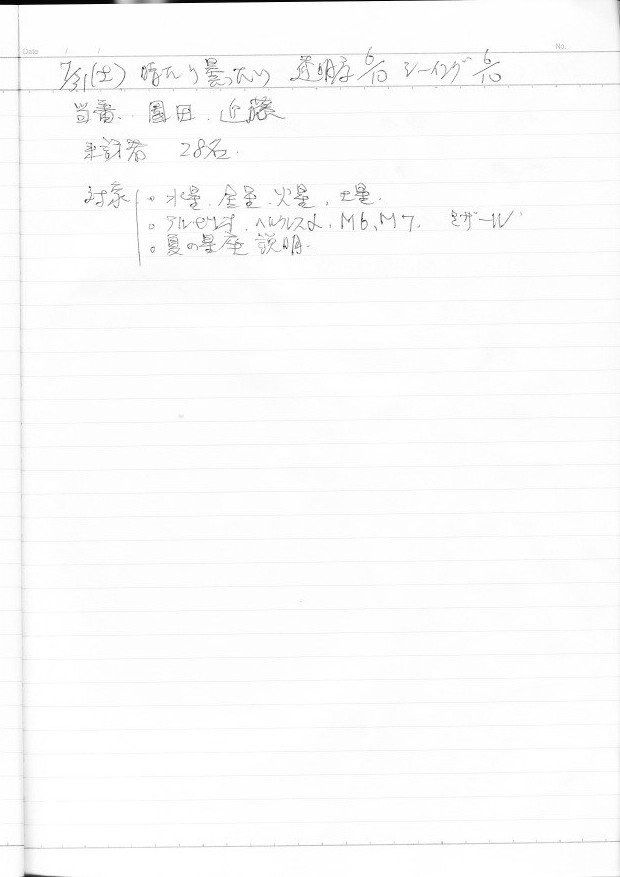 Date / / No.
7/31(土) 晴たり曇ったり 透明度 6/10 シーイング 6/10
当番. 園田. 近藤
来訪者 28名.
対象 。水星. 金星. 火星. 土星.
。アルビレオ. ヘルクレスα. M6、M7. ミザール
。夏の星座 説明.